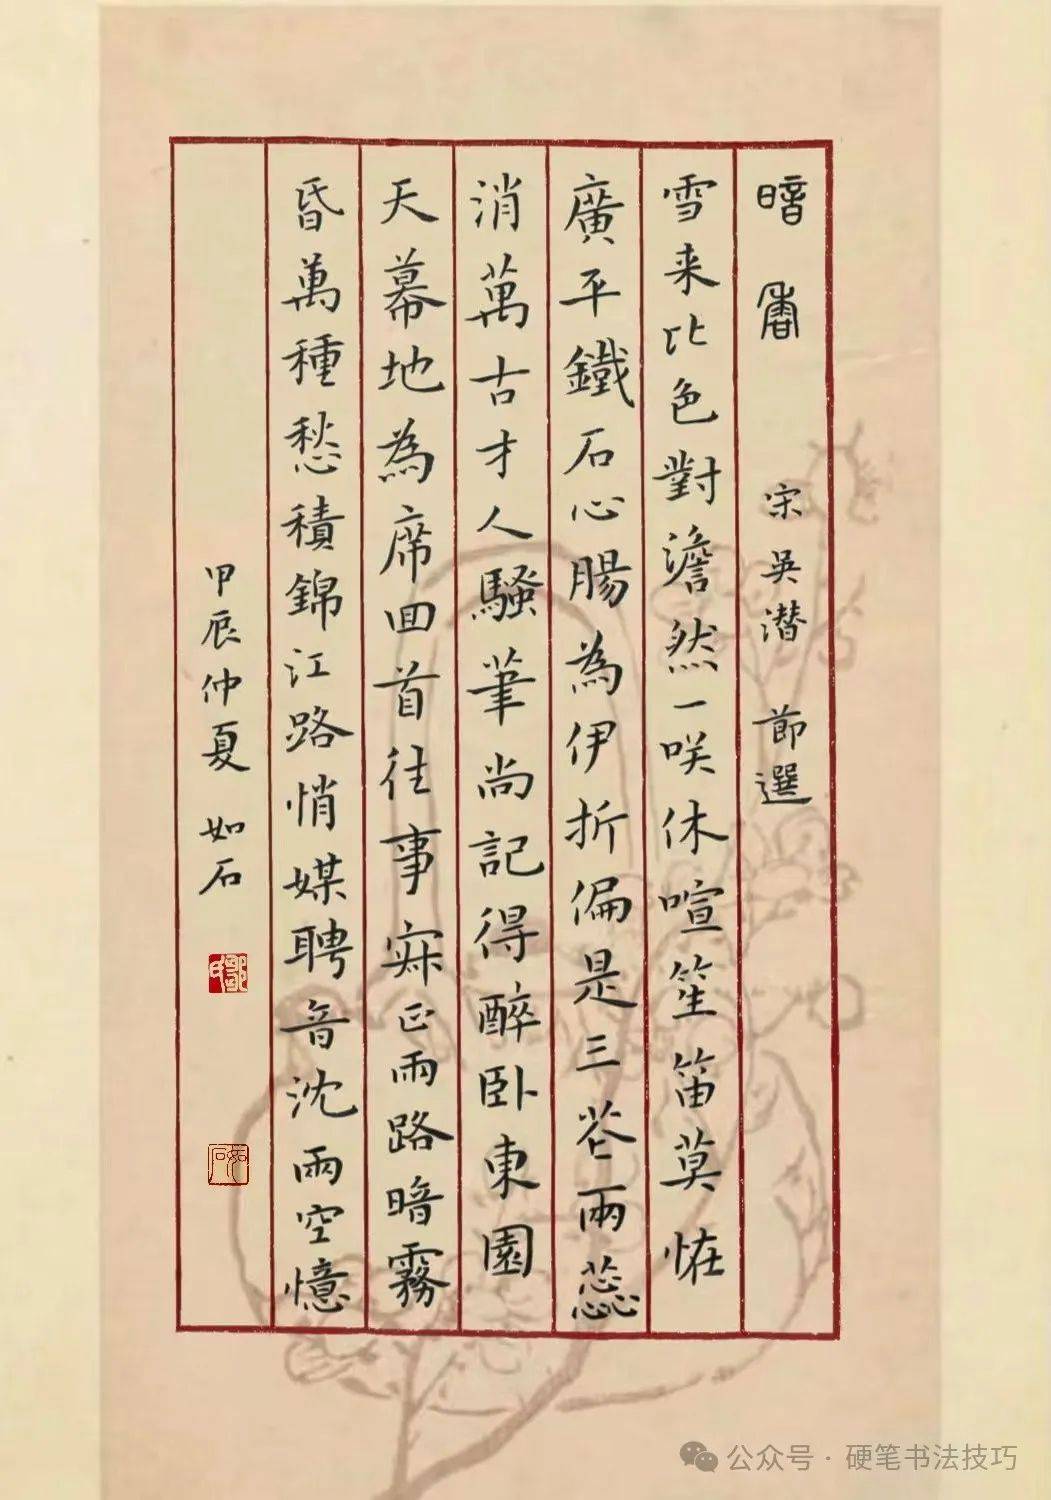 暗香 宋吳潜 節選
雪来比色對澹然一咲休喧笙笛莫恠
廣平鐵石心腸為伊折偏是三花兩蕊
消萬古才人騷筆尚記得醉卧東園
天幕地為席回首往事寂正雨路暗霧
昏萬種愁積錦江路悄媒聘音沈兩空憶
甲辰仲夏 如石
如石
公众号 · 硬笔书法技巧